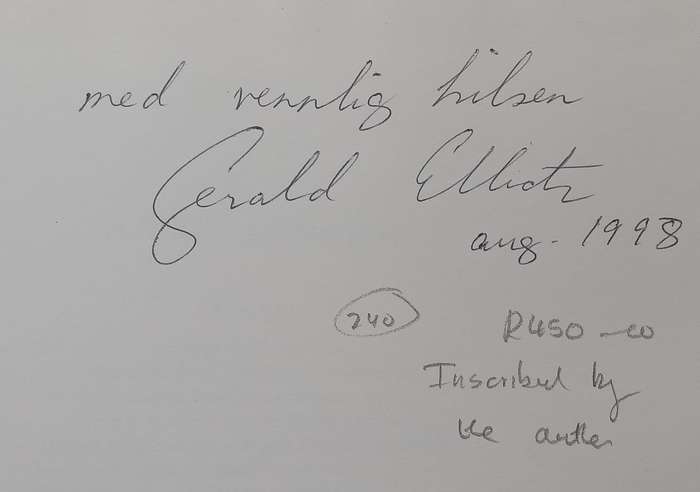 med vennlig hilsen
Gerald Elliott
aug. 1998
240
R450-00
Inscribed by
the author